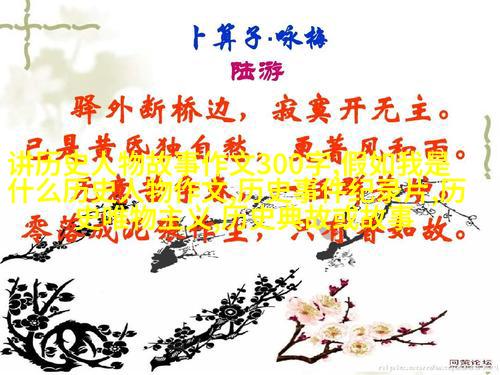 卜算子·咏梅
陆游
驿外断桥边，寂寞开无主。
已是黄昏独自愁，更著风和雨。
讲历史人物故事作文300字,假如我是
什么历史人物作文,历史事件纪录片,历
史唯物主义,历史典故或故事
零落成泥碾作尘，只有香如故。